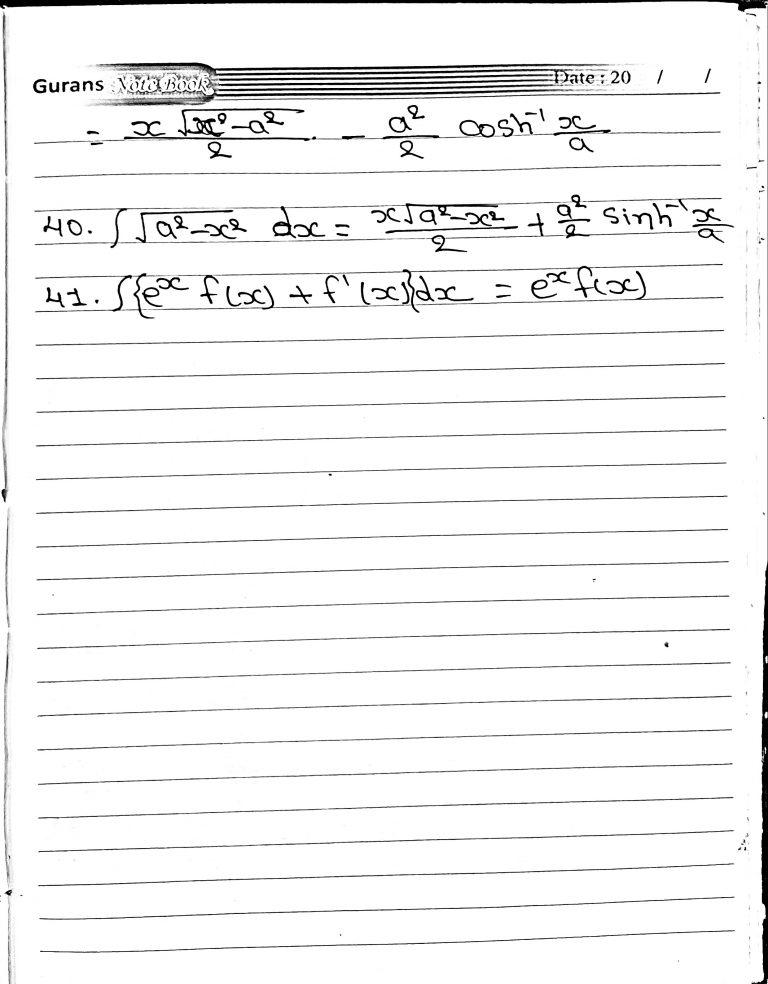 Gurans Note Book Date : 20 / /
= x √x² - a² / 2 - a²/2 cosh⁻¹ x/a
40. ∫ √a² - x² dx = x√a² - x² / 2 + a²/2 sinh⁻¹ x/a
41. ∫{eˣ f(x) + f'(x)}dx = eˣ f(x)